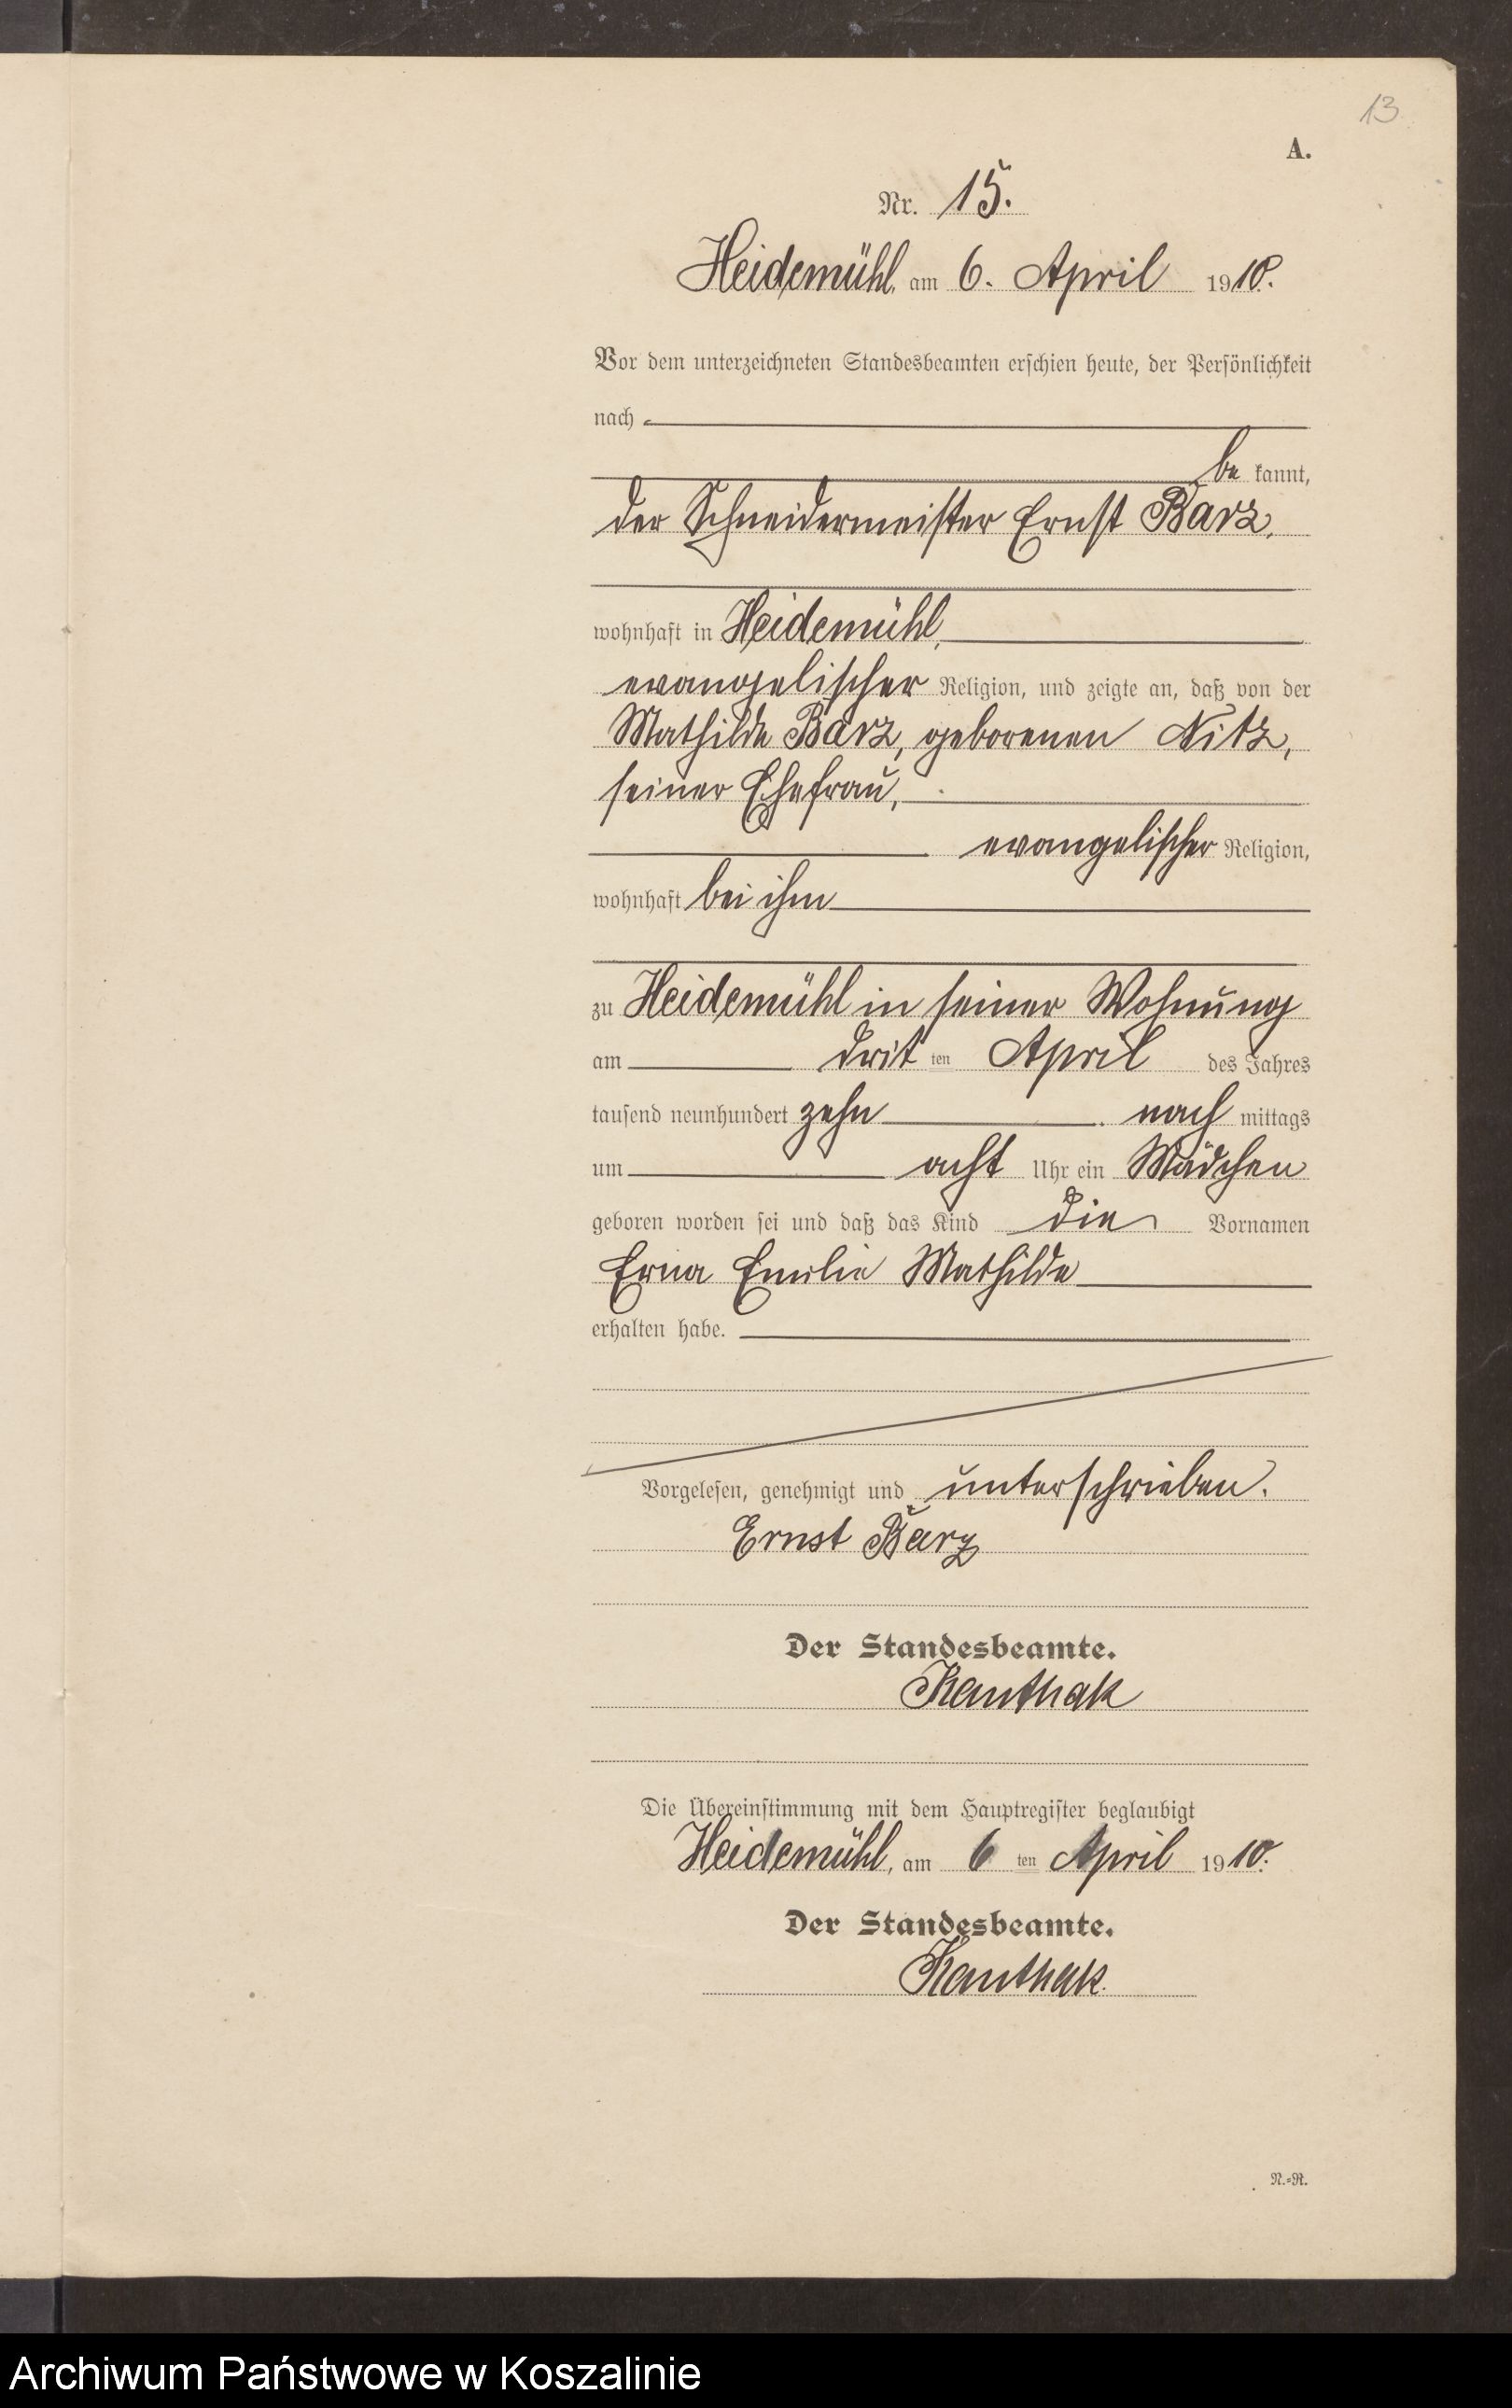 13
A.
Nr. 15.
Heidemühl, am 6. April 1910.
Vor dem unterzeichneten Standesbeamten erschien heute, der Persönlichkeit
nach
be kannt,
der Schneidermeister Ernst Barz,
wohnhaft in Heidemühl,
evangelischer Religion, und zeigte an, daß von der
Mathilde Barz, geborenen Nitz,
seiner Ehefrau,
evangelischer Religion,
wohnhaft bei ihm
zu Heidemühl in seiner Wohnung
am drit ten April des Jahres
tausend neunhundert zehn nach mittags
um acht Uhr ein Mädchen
geboren worden sei und daß das Kind die Vornamen
Erna Emilie Mathilde
erhalten habe.
Vorgelesen, genehmigt und unterschrieben.
Ernst Barz
Der Standesbeamte.
Kanthak
Die Übereinstimmung mit dem Hauptregister beglaubigt
Heidemühl, am 6 ten April 1910.
Der Standesbeamte.
Kanthak.
N.=R.
Archiwum Państwowe w Koszalinie